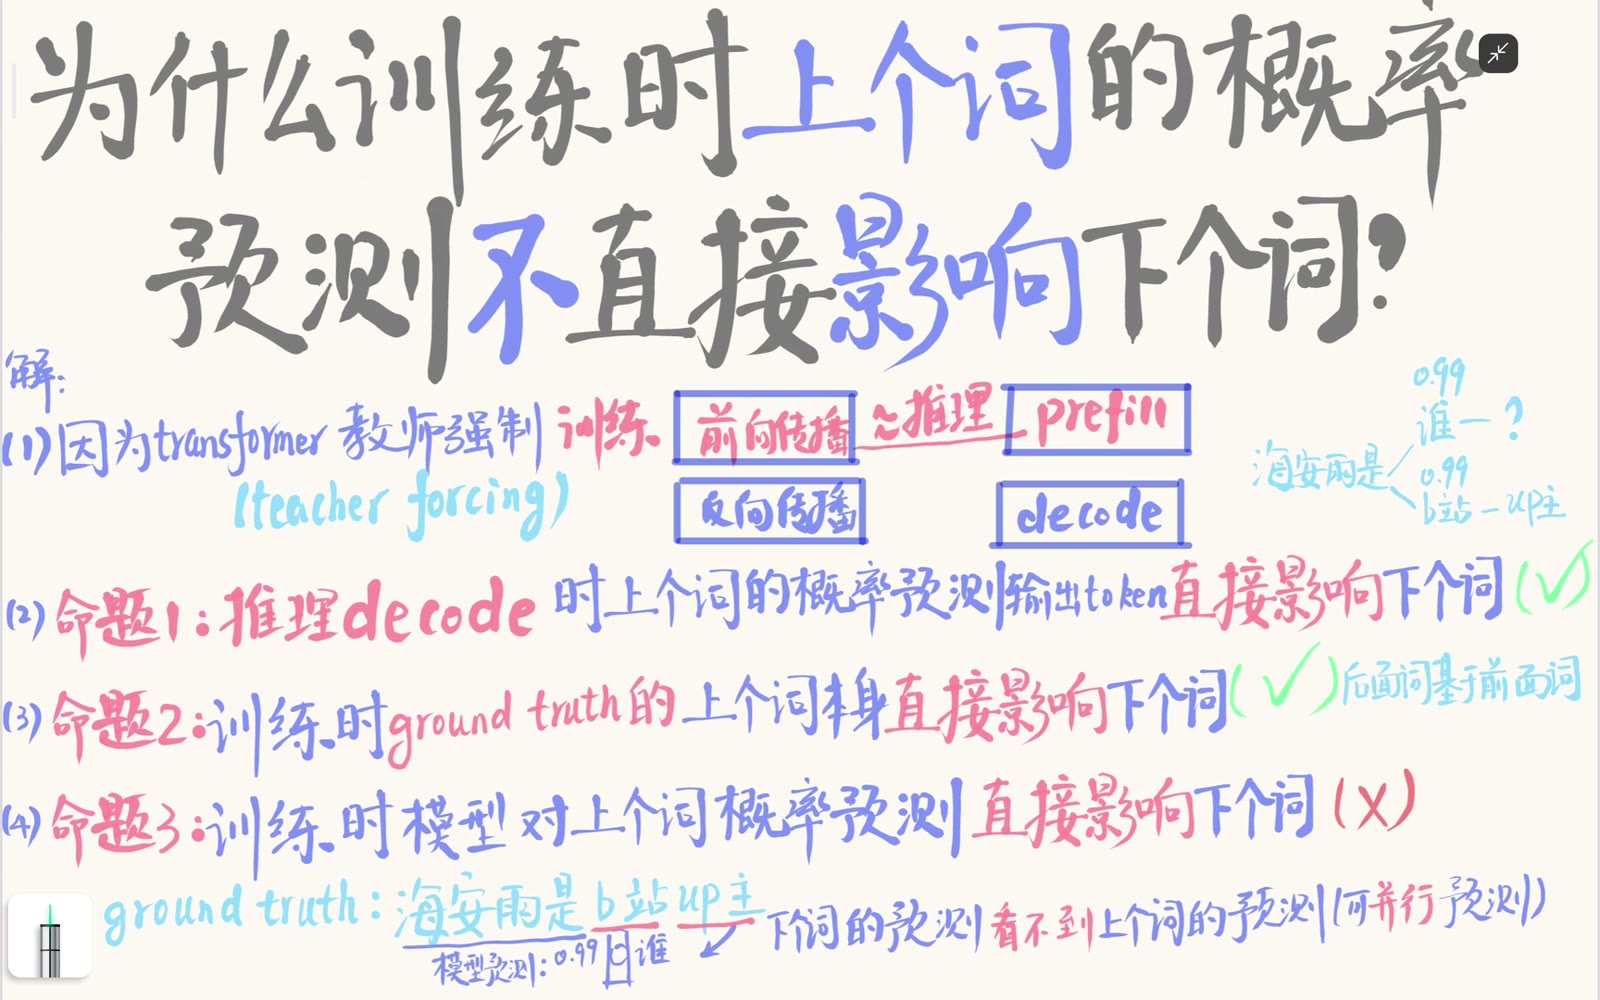 为什么训练时上个词的概率
预测不直接影响下个词?
解:
(1)因为transformer 教师强制 训练 前向传播 ≈推理 prefill
(teacher forcing) 反向传播 decode
0.99
谁—?
海安雨是
0.99
b站—up主
(2)命题1:推理decode时上个词的概率预测输出token直接影响下个词(✓)
(3)命题2:训练时ground truth的上个词本身直接影响下个词(✓)后面词基于前面词
(4)命题3:训练时模型对上个词概率预测直接影响下个词(X)
ground truth:海安雨是b站up主 下个词的预测看不到上个词的预测(可并行预测)
模型预测:0.99 谁